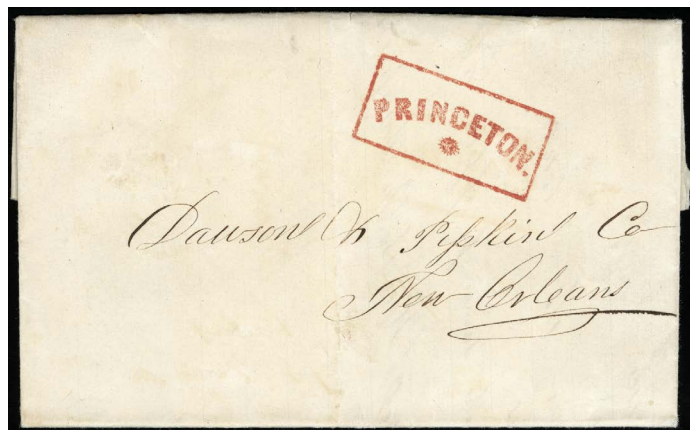 PRINCETON.
Dawson & Pipkin Co
New Orleans